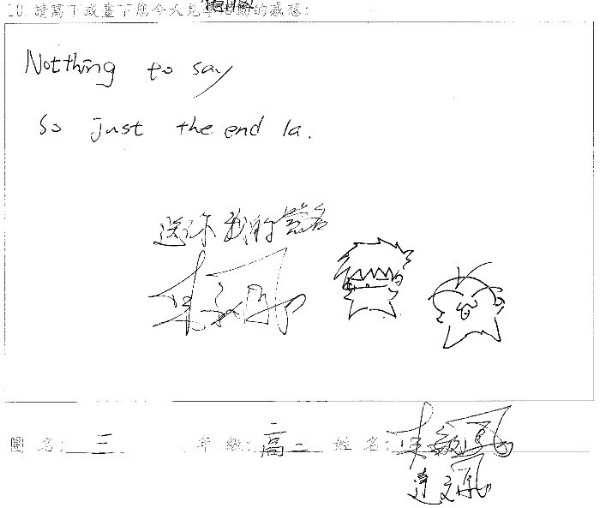 10.請寫下或畫下您今天 活動的感想:
Notthing to say
So just the end la.
送你我的簽名
團 名: 三 年 級: 高二 姓 名: